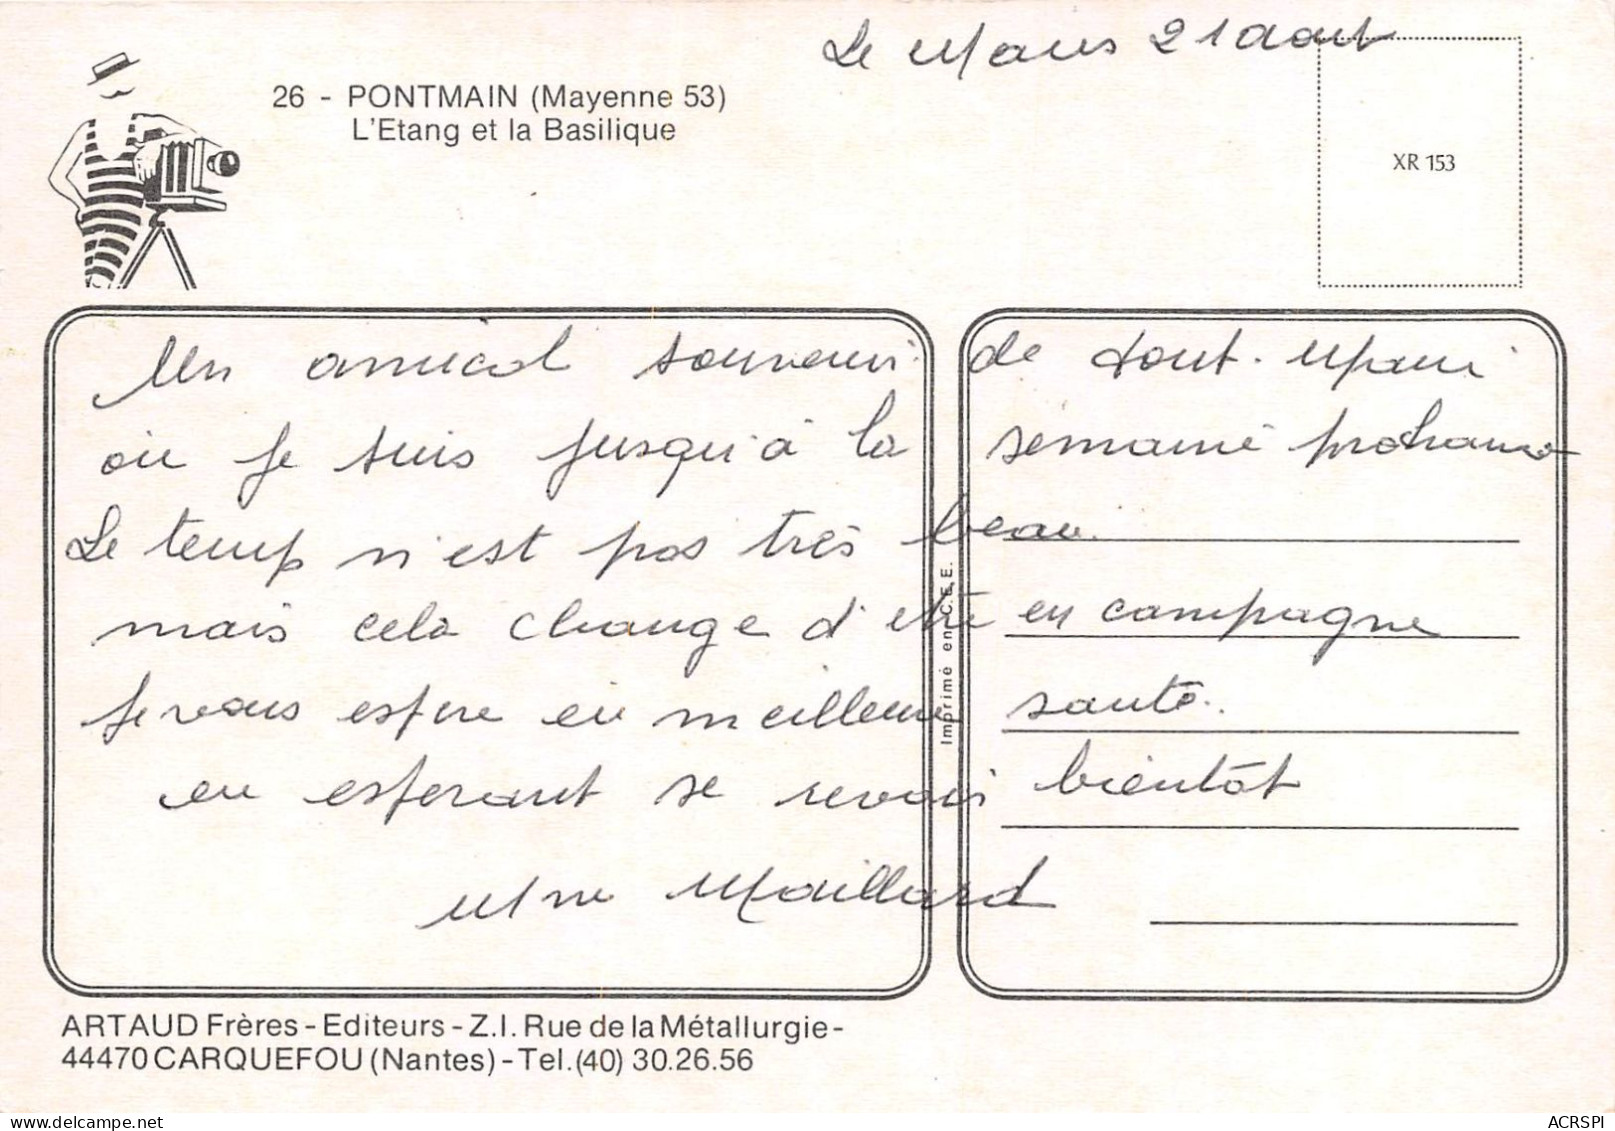 Le Mans 21 aout
26 - PONTMAIN (Mayenne 53)
L'Etang et la Basilique
XR 153
Un amical souvenir de Pont-Main
où je suis jusqu'à la semaine prochaine
Le temps n'est pas très beau.
mais cela change d'été en campagne
Je vous espère en meilleure santé.
en esperant se revoir bientôt
Mme Maillard
Imprimé en C.E.E.
ARTAUD Frères - Editeurs - Z.I. Rue de la Métallurgie -
44470 CARQUEFOU (Nantes) - Tel. (40) 30.26.56
ACRSPI